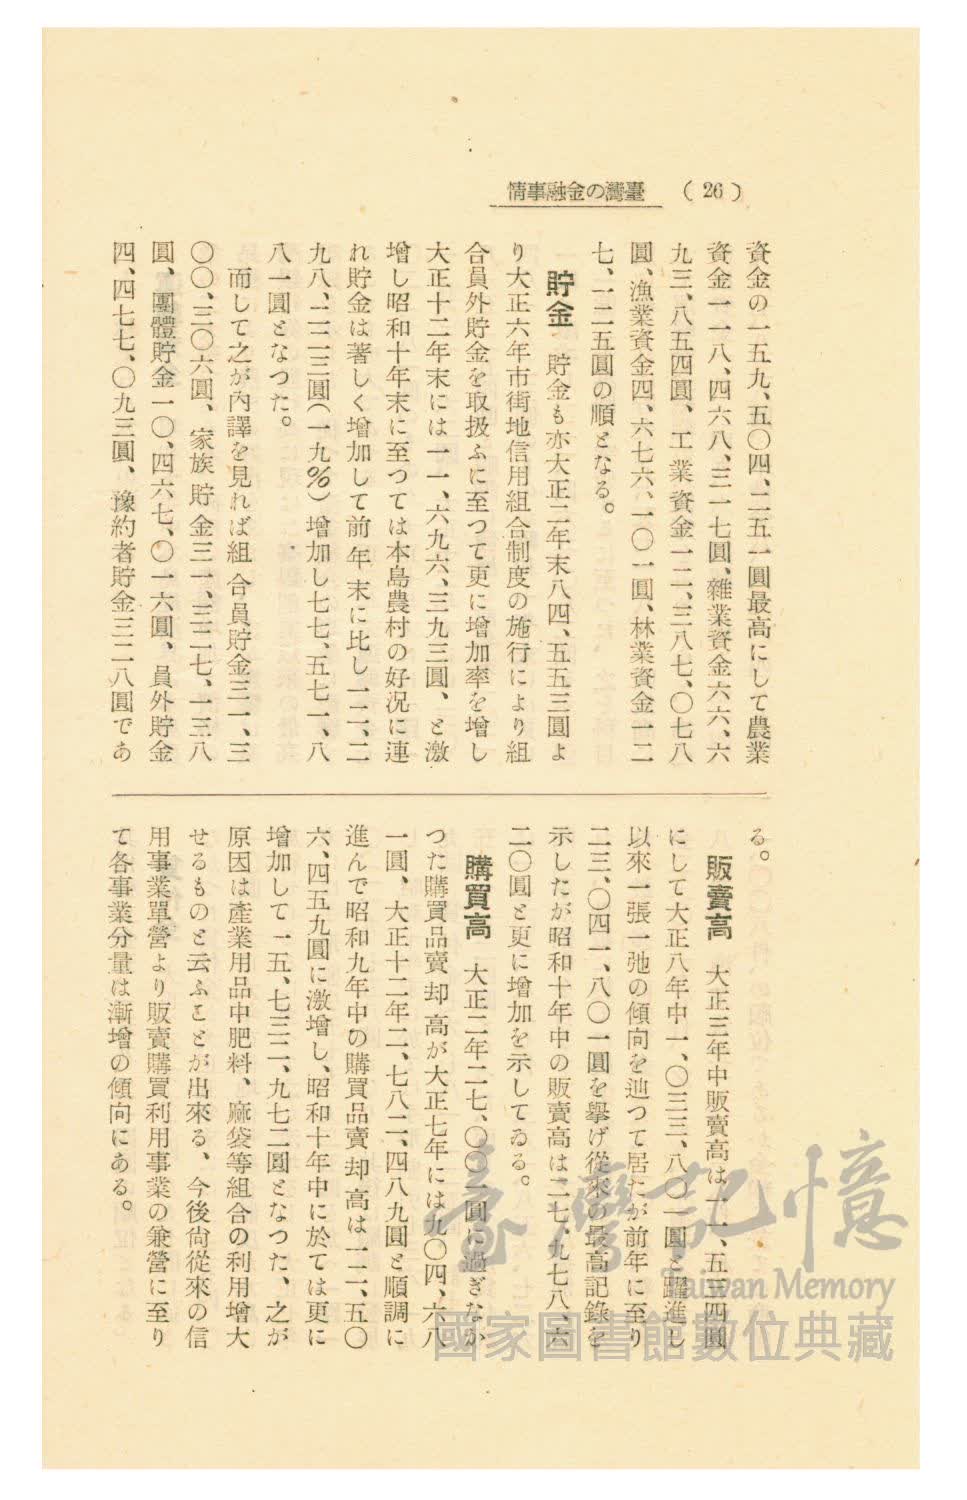 (26) 臺灣の金融事情
資金の一五九、五〇四、二五一圓最高にして農業
資金一一八、四六八、三一七圓、雜業資金六六、六
九三、八五四圓、工業資金一二、三八七、〇七八
圓、漁業資金四、六七六、一〇一圓、林業資金一二
七、一二五圓の順となる。
貯金 貯金も亦大正二年末八四、五五三圓よ
り大正六年市街地信用組合制度の施行により組
合員外貯金を取扱ふに至つて更に增加率を增し
大正十二年末には一一、六九六、三九三圓、と激
增し昭和十年末に至つては本島農村の好況に連
れ貯金は著しく增加して前年末に比し一二、二
九八、二二三圓(一九%)增加し七七、五七一、八
八一圓となつた。
而して之が內譯を見れば組合員貯金三一、三
〇〇、三〇六圓、家族貯金三一、三二七、一三八
圓、團體貯金一〇、四六七、〇一六圓、員外貯金
四、四七七、〇九三圓、豫約者貯金三二八圓であ
る。
販賣高 大正三年中販賣高は一一、五三四圓
にして大正八年中一、〇三三、八〇一圓と躍進し
以來一張一弛の傾向を辿つて居たが前年に至り
二三、〇四一、八〇一圓を擧げ從來の最高記錄を
示したが昭和十年中の販賣高は二七、九七八、六
二〇圓と更に增加を示してゐる。
購買高 大正二年二七、〇〇一圓に過ぎなか
つた購買品賣却高が大正七年には九〇四、六八
一圓、大正十二年二、七八二、四八九圓と順調に
進んで昭和九年中の購買品賣却高は一二、五〇
六、四五九圓に激增し、昭和十年中に於ては更に
增加して一五、七三二、九七二圓となつた、之が
原因は產業用品中肥料、麻袋等組合の利用增大
せるものと云ふことが出來る、今後尙從來の信
用事業單營より販賣購買利用事業の兼營に至り
て各事業分量は漸增の傾向にある。
臺灣記憶
Taiwan Memory
國家圖書館數位典藏